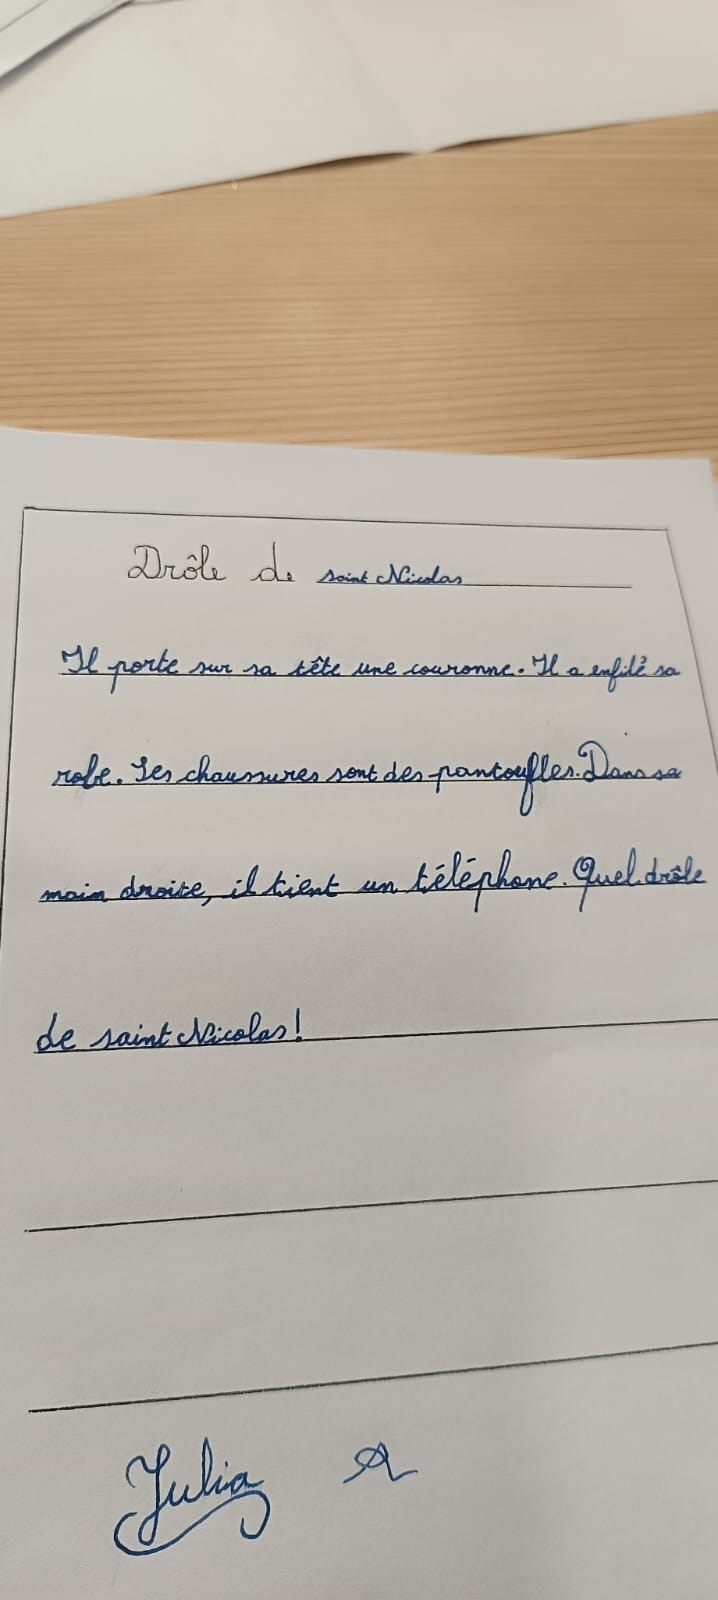 Drôle de saint Nicolas
Il porte sur sa tête une couronne. Il a enfilé sa
robe. Ses chaussures sont des pantoufles. Dans sa
main droite, il tient un téléphone. Quel drôle
de saint Nicolas!
Julia A